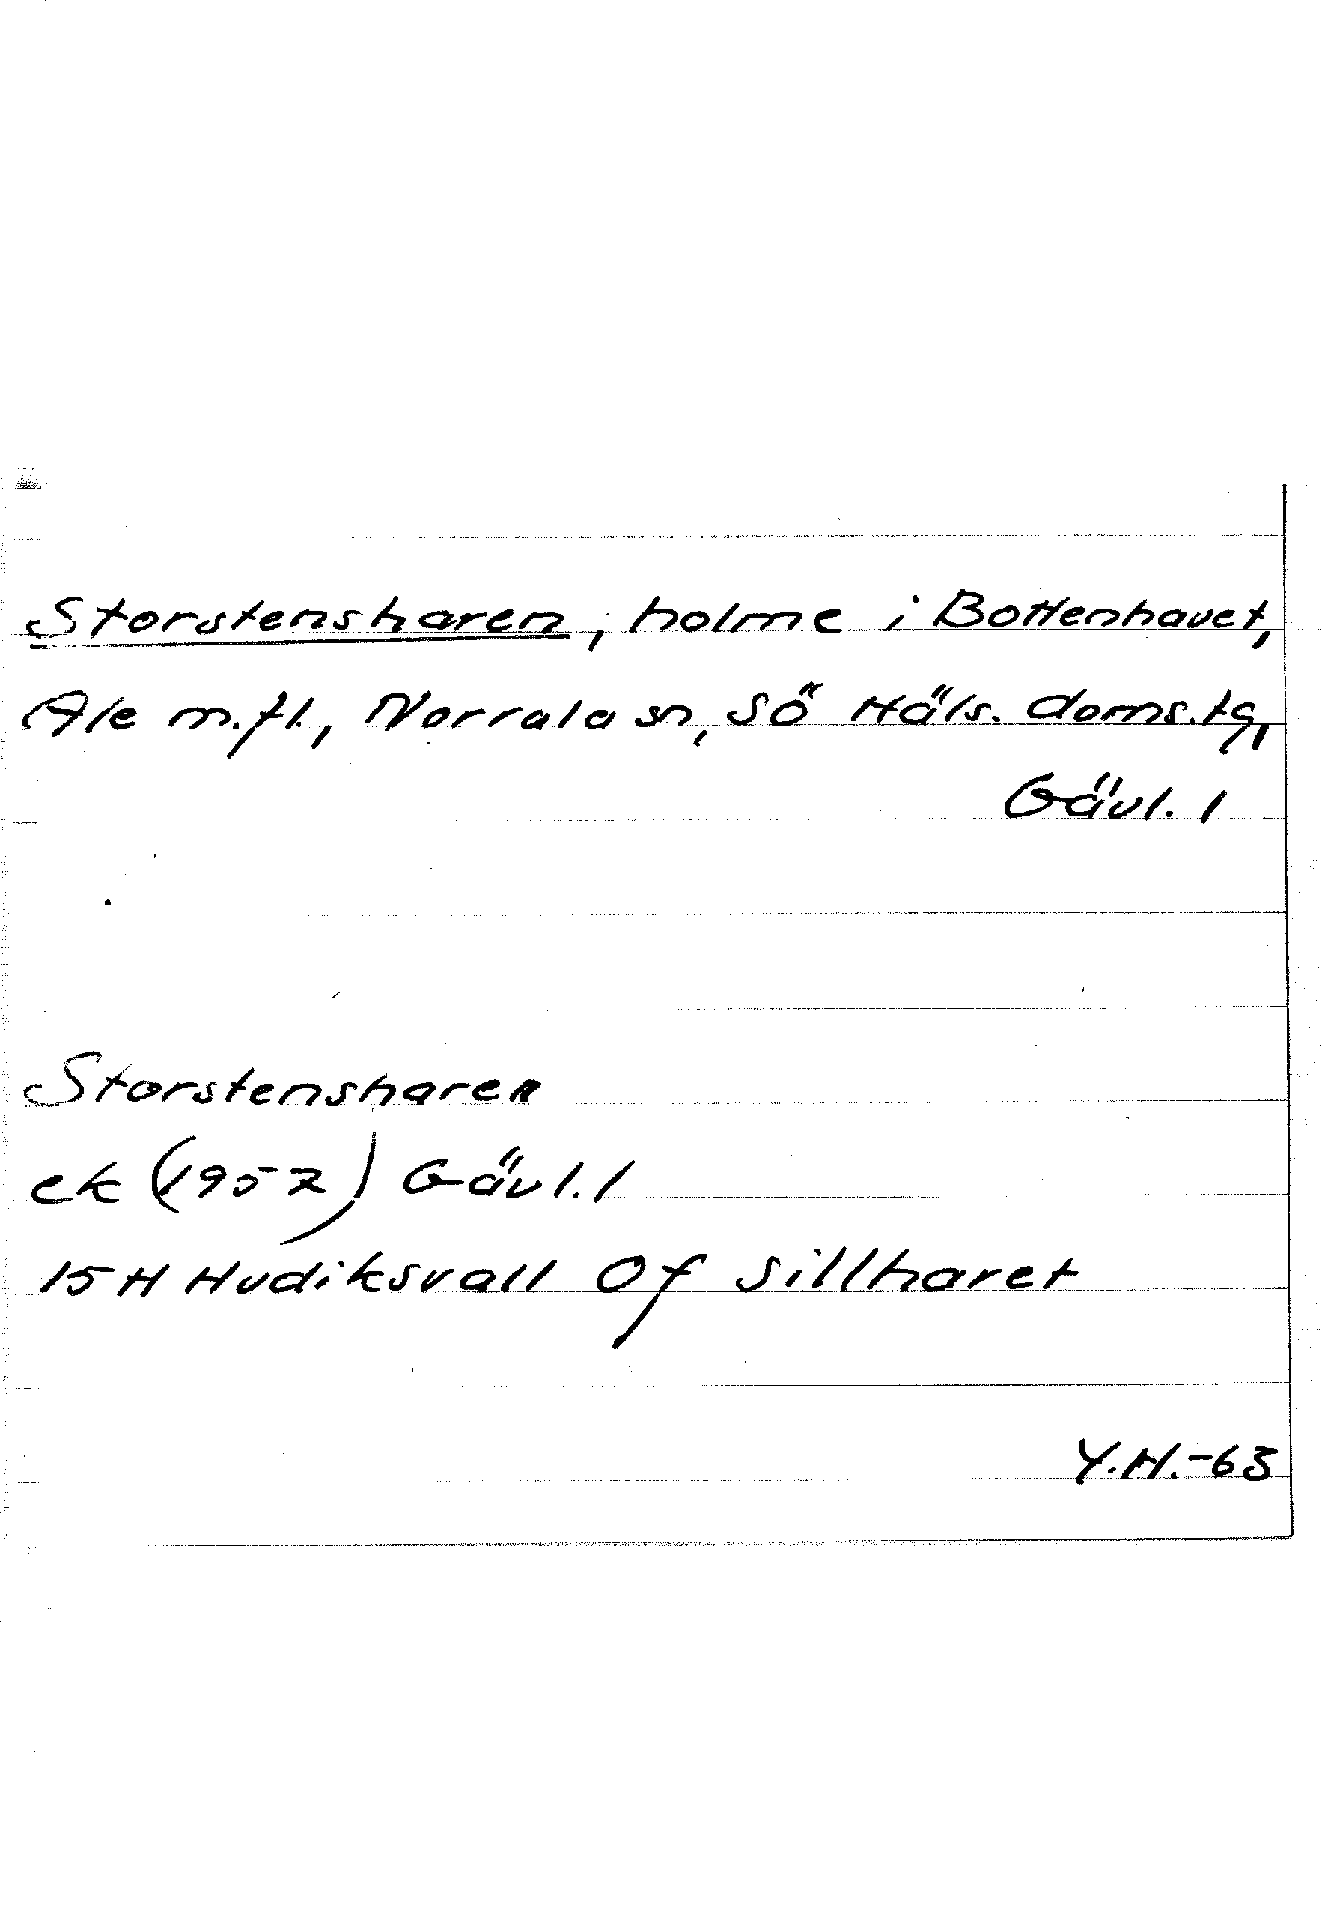 Storstensharen, holme i Bottenhavet,
Ale m.fl., Norrala sn, Sö Häls. doms.tg,
Gävl. l
Storstensharen
ek (1952) Gävl. l
15H Hudiksvall Of Sillharet
Y.H.-63